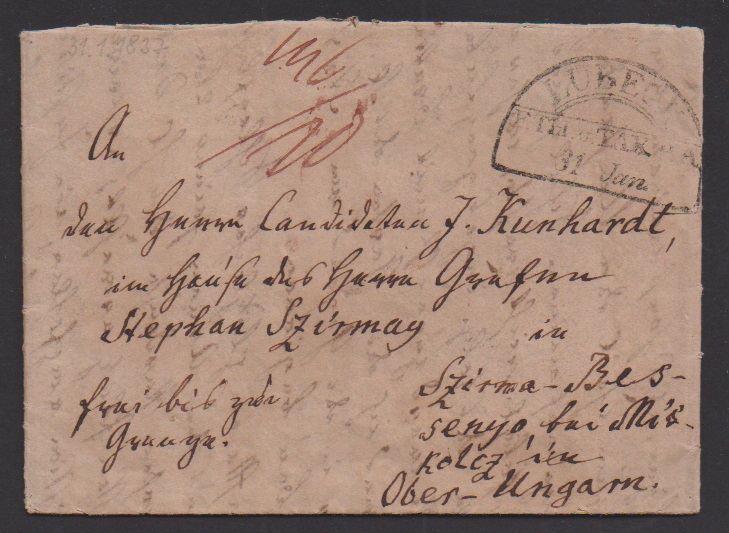 31.1.1837
LÜBECK
31 Jan
An
den Herrn Candidaten J. Kunhardt,
im Hause des Herrn Grafen
Stephan Szirmay in
Szirma-Bes-
senyo bei Mis-
kolcz in
Ober-Ungarn.
frei bis zur
Grenze.